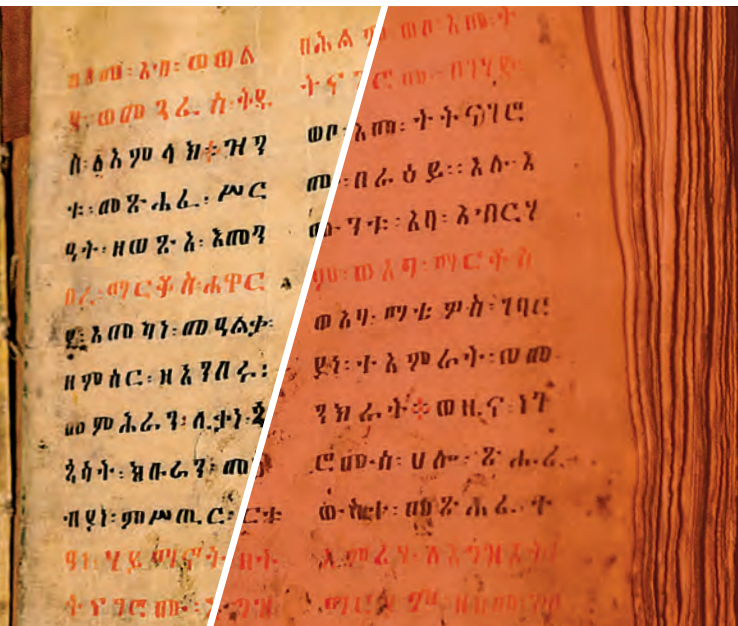 በስመ፡ አብ፡ ወወል
ድ፡ ወመንፈስ፡ ቅዱ
ስ፡ ፩አምላክ፨ ዝን
ቱ፡ መጽሐፈ፡ ሥር
ዓት፡ ዘወጽአ፡ እመን
በረ፡ ማርቆስ፡ ሐዋር
ያ፡ እመካነ፡ መዓልቃ፡
ዘምስር፡ ዘአንበሩ፡
መምሕራን፡ ሊቃነ፡ ጳ
ጳሳት፡ ኅቡራን፡
ምሥጢር፡ ርቱ
ዓነ፡ ሃይማኖት፡ ዘተ
ተናገሮሙ፡
በሕልም፡ ወቦ፡ እመ፡ ት
ትናገሮሙ፡ በገሃድ፡
ወቦ፡ እመ፡ ትትናገሮ
ሙ፡ በራዕይ፡፡ እሉ፡ እ
ሙንቱ፡ አባ፡ አብርሃ
ም፡ ወአባ፡ ማርቆስ
ወአባ፡ ማቴዎስ፡ ገባር
ያነ፡ ተአምራት፡ ወመ
ንክራት፨ ወዜና፡ ነገ
ሮሙ፡ሰ፡ ሀሎ፡ ጽሑፈ
ውስተ፡ መጽሐፈ፡ ተ
አምሪሃ፡ ለእግዝእትነ